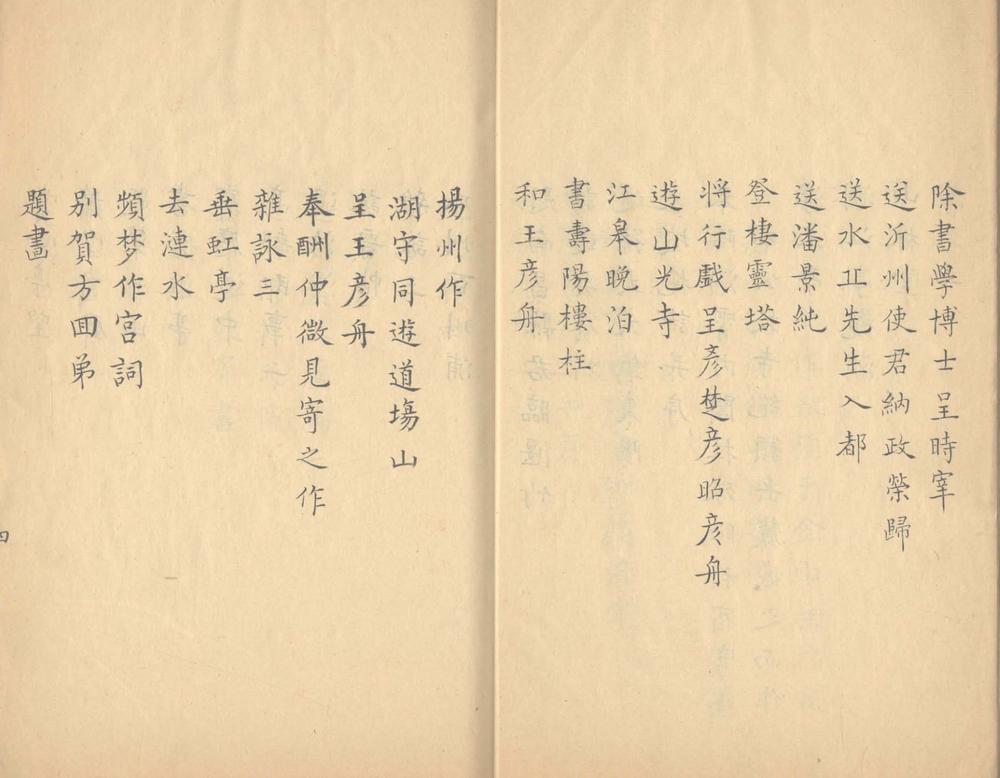 除書學博士呈時宰
送沂州使君納政榮歸
送水丘先生入都
送潘景純
登棲靈塔
将行戲呈彥楚彥昭彥舟
遊山光寺
江皋晚泊
書壽陽樓柱
和王彥舟
揚州作
湖守同遊道塲山
呈王彥舟
奉酬仲微見寄之作
雜詠三
垂虹亭
去漣水
頻梦作宮詞
別賀方回弟
題畫
四